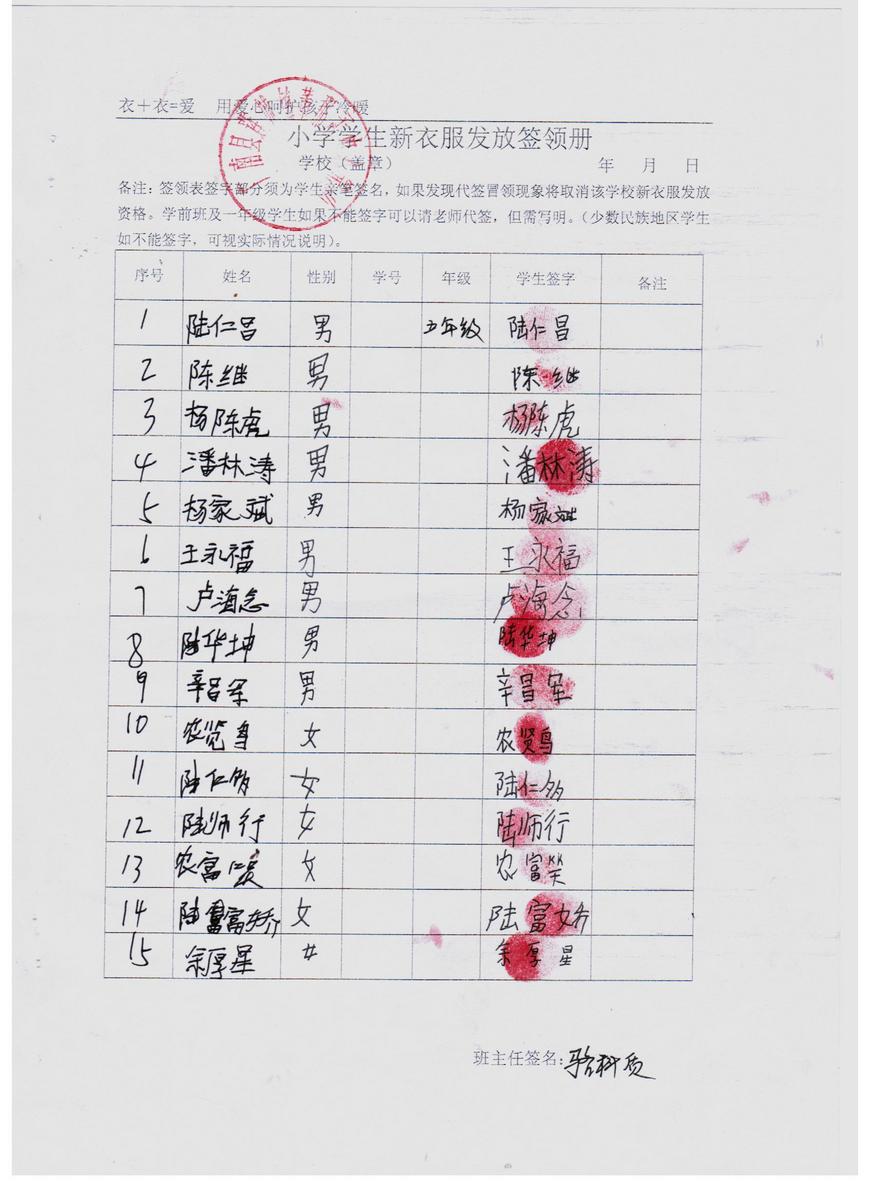 衣＋衣=爱 用爱心呵护孩子冷暖
小学学生新衣服发放签领册
学校（盖章） 年 月 日
备注：签领表签字部分须为学生亲笔签名，如果发现代签冒领现象将取消该学校新衣服发放
资格。学前班及一年级学生如果不能签字可以请老师代签，但需写明。（少数民族地区学生
如不能签字，可视实际情况说明）。
序号 姓名 性别 学号 年级 学生签字 备注
1 陆仁昌 男 五年级 陆仁昌
2 陈继 男 陈继
3 杨陈虎 男 杨陈虎
4 潘林涛 男 潘林涛
5 杨家斌 男 杨家斌
6 王永福 男 王永福
7 卢海念 男 卢海念
8 陆华坤 男 陆华坤
9 辛昌军 男 辛昌军
10 农览鸟 女 农贤鸟
11 陆仁多 女 陆仁多
12 陆师行 女 陆师行
13 农富 女 农富笑
14 陆富娇 女 陆富娇
15 余厚星 女 余厚星
班主任签名：